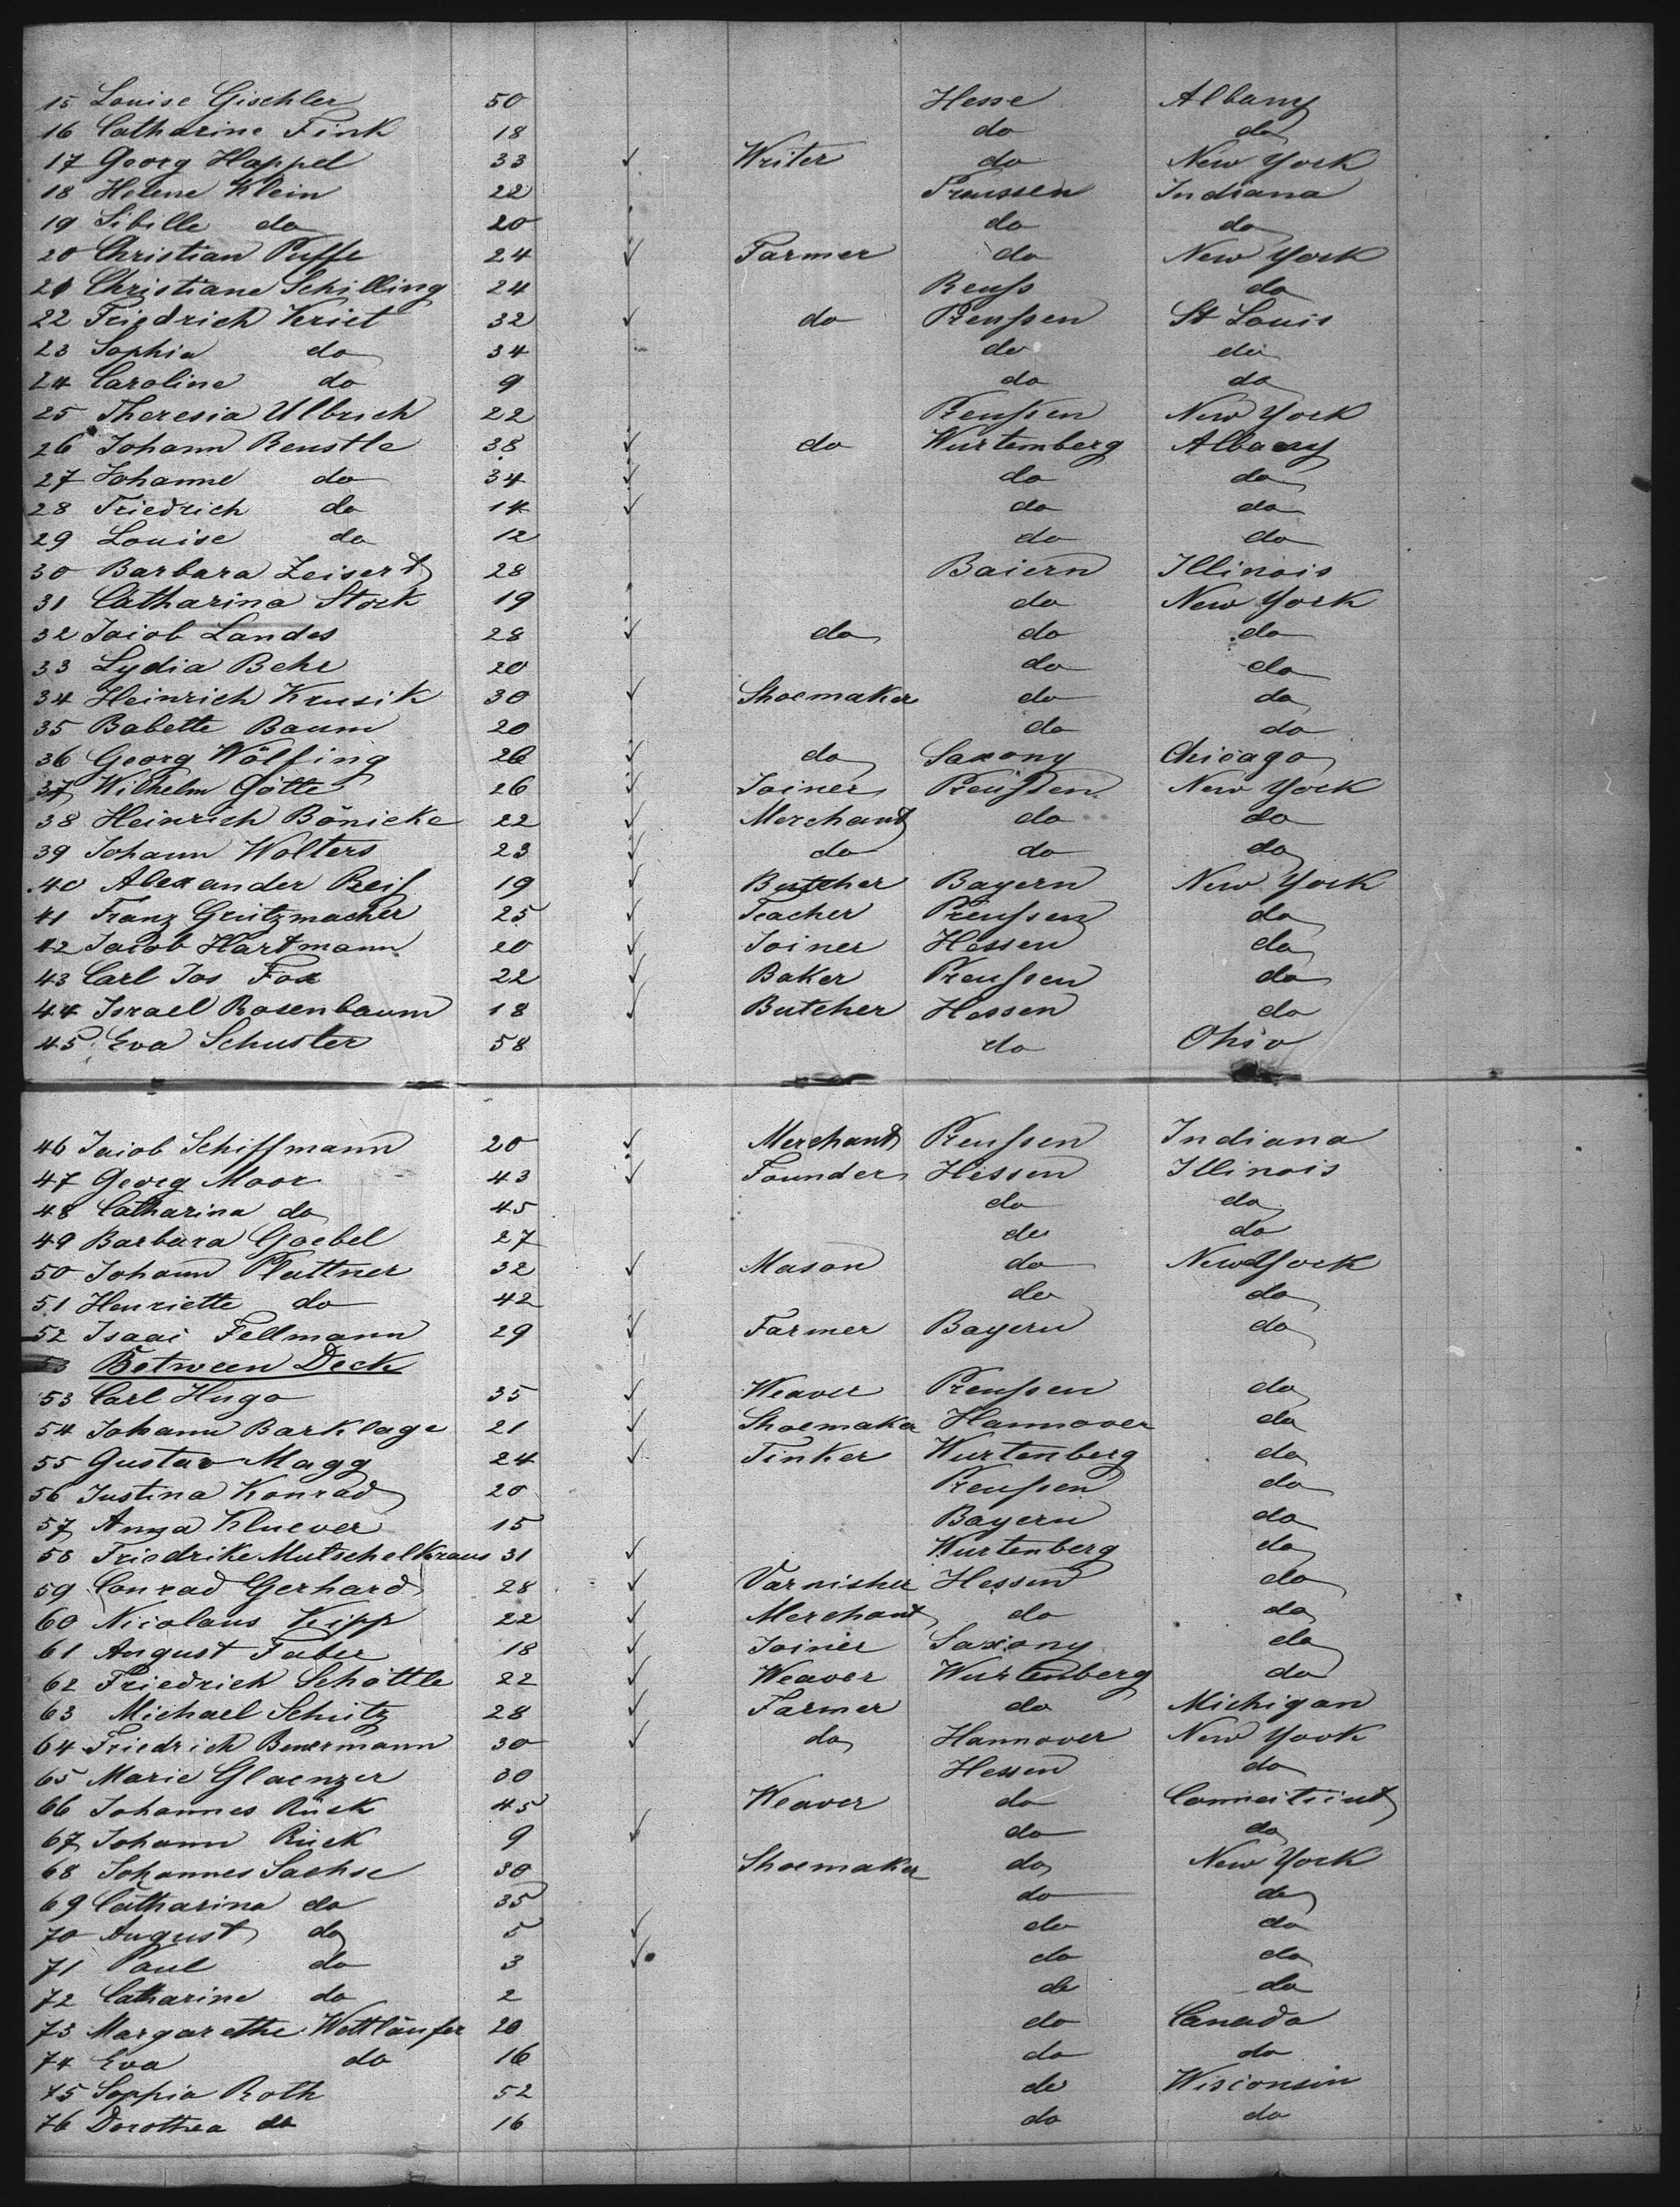 15 Louise Gischler 50 Hesse Albany
16 Catharine Fink 18 do do
17 Georg Happel 33 ✓ Writer do New York
18 Helene Klein 22 Preussen Indiana
19 Sibille do 20 do do
20 Christian Puffe 24 ✓ Farmer do New York
21 Christiane Schilling 24 Reuß do
22 Friedrich Kriet 32 ✓ do Preußen St Louis
23 Sophia do 34 do do
24 Caroline do 9 do do
25 Theresia Ulbrich 22 Preußen New York
26 Johann Reustle 38 ✓ do Wurtemberg Albany
27 Johanne do 34 ✓ do do
28 Friedrich do 14 ✓ do do
29 Louise do 12 do do
30 Barbara Zeisert 28 Baiern Illinois
31 Catharina Stock 19 do New York
32 Jacob Landes 28 ✓ do do do
33 Lydia Behr 20 do do
34 Heinrich Krusik 30 ✓ Shoemaker do do
35 Babette Baum 20 do do
36 Georg Wölfing 26 ✓ do Saxony Chicago
37 Wilhelm Götte 26 ✓ Joiner Preußen New York
38 Heinrich Bönicke 22 ✓ Merchant do do
39 Johann Wolters 23 ✓ do do do
40 Alexander Reis 19 ✓ Butcher Bayern New York
41 Franz Grützmacher 25 ✓ Teacher Preußen do
42 Jacob Hartmann 20 ✓ Joiner Hessen do
43 Carl Jos Fox 22 ✓ Baker Preußen do
44 Israel Rosenbaum 18 ✓ Butcher Hessen do
45 Eva Schuster 58 do Ohio
46 Jacob Schiffmann 20 ✓ Merchant Preußen Indiana
47 Georg Moor 43 ✓ Founder Hessen Illinois
48 Catharina do 45 do do
49 Barbara Goebel 27 do do
50 Johann Plattner 32 ✓ Mason do New York
51 Henriette do 42 do do
52 Isaac Fellmann 29 ✓ Farmer Bayern do
53 Between Deck
53 Carl Hugo 35 ✓ Weaver Preußen do
54 Johann Barklage 21 ✓ Shoemaker Hannover do
55 Gustav Magg 24 ✓ Tinker Wurtenberg do
56 Justina Konrad 20 Preußen do
57 Anna Kluever 15 Bayern do
58 Friedrike Mutschelkraus 31 ✓ Wurtenberg do
59 Conrad Gerhard 28 ✓ Varnisher Hessen do
60 Nicolaus Kipp 22 ✓ Merchant do do
61 August Faber 18 ✓ Joiner Saxony do
62 Friedrich Schöttle 22 ✓ Weaver Wurtenberg do
63 Michael Schütz 28 ✓ Farmer do Michigan
64 Friedrich Benermann 30 ✓ do Hannover New York
65 Marie Glaenzer 30 Hessen do
66 Johannes Rück 45 Weaver do Connecticut
67 Johann Rück 9 ✓ do do
68 Johannes Sachse 30 Shoemaker do New York
69 Catharina do 35 do do
70 August do 5 ✓ do do
71 Paul do 3 ✓ do do
72 Catharine do 2 do do
73 Margarethe Wettläufer 20 do Canada
74 Eva do 16 do do
75 Sophia Roth 52 do Wisconsin
76 Dorothea do 16 do do